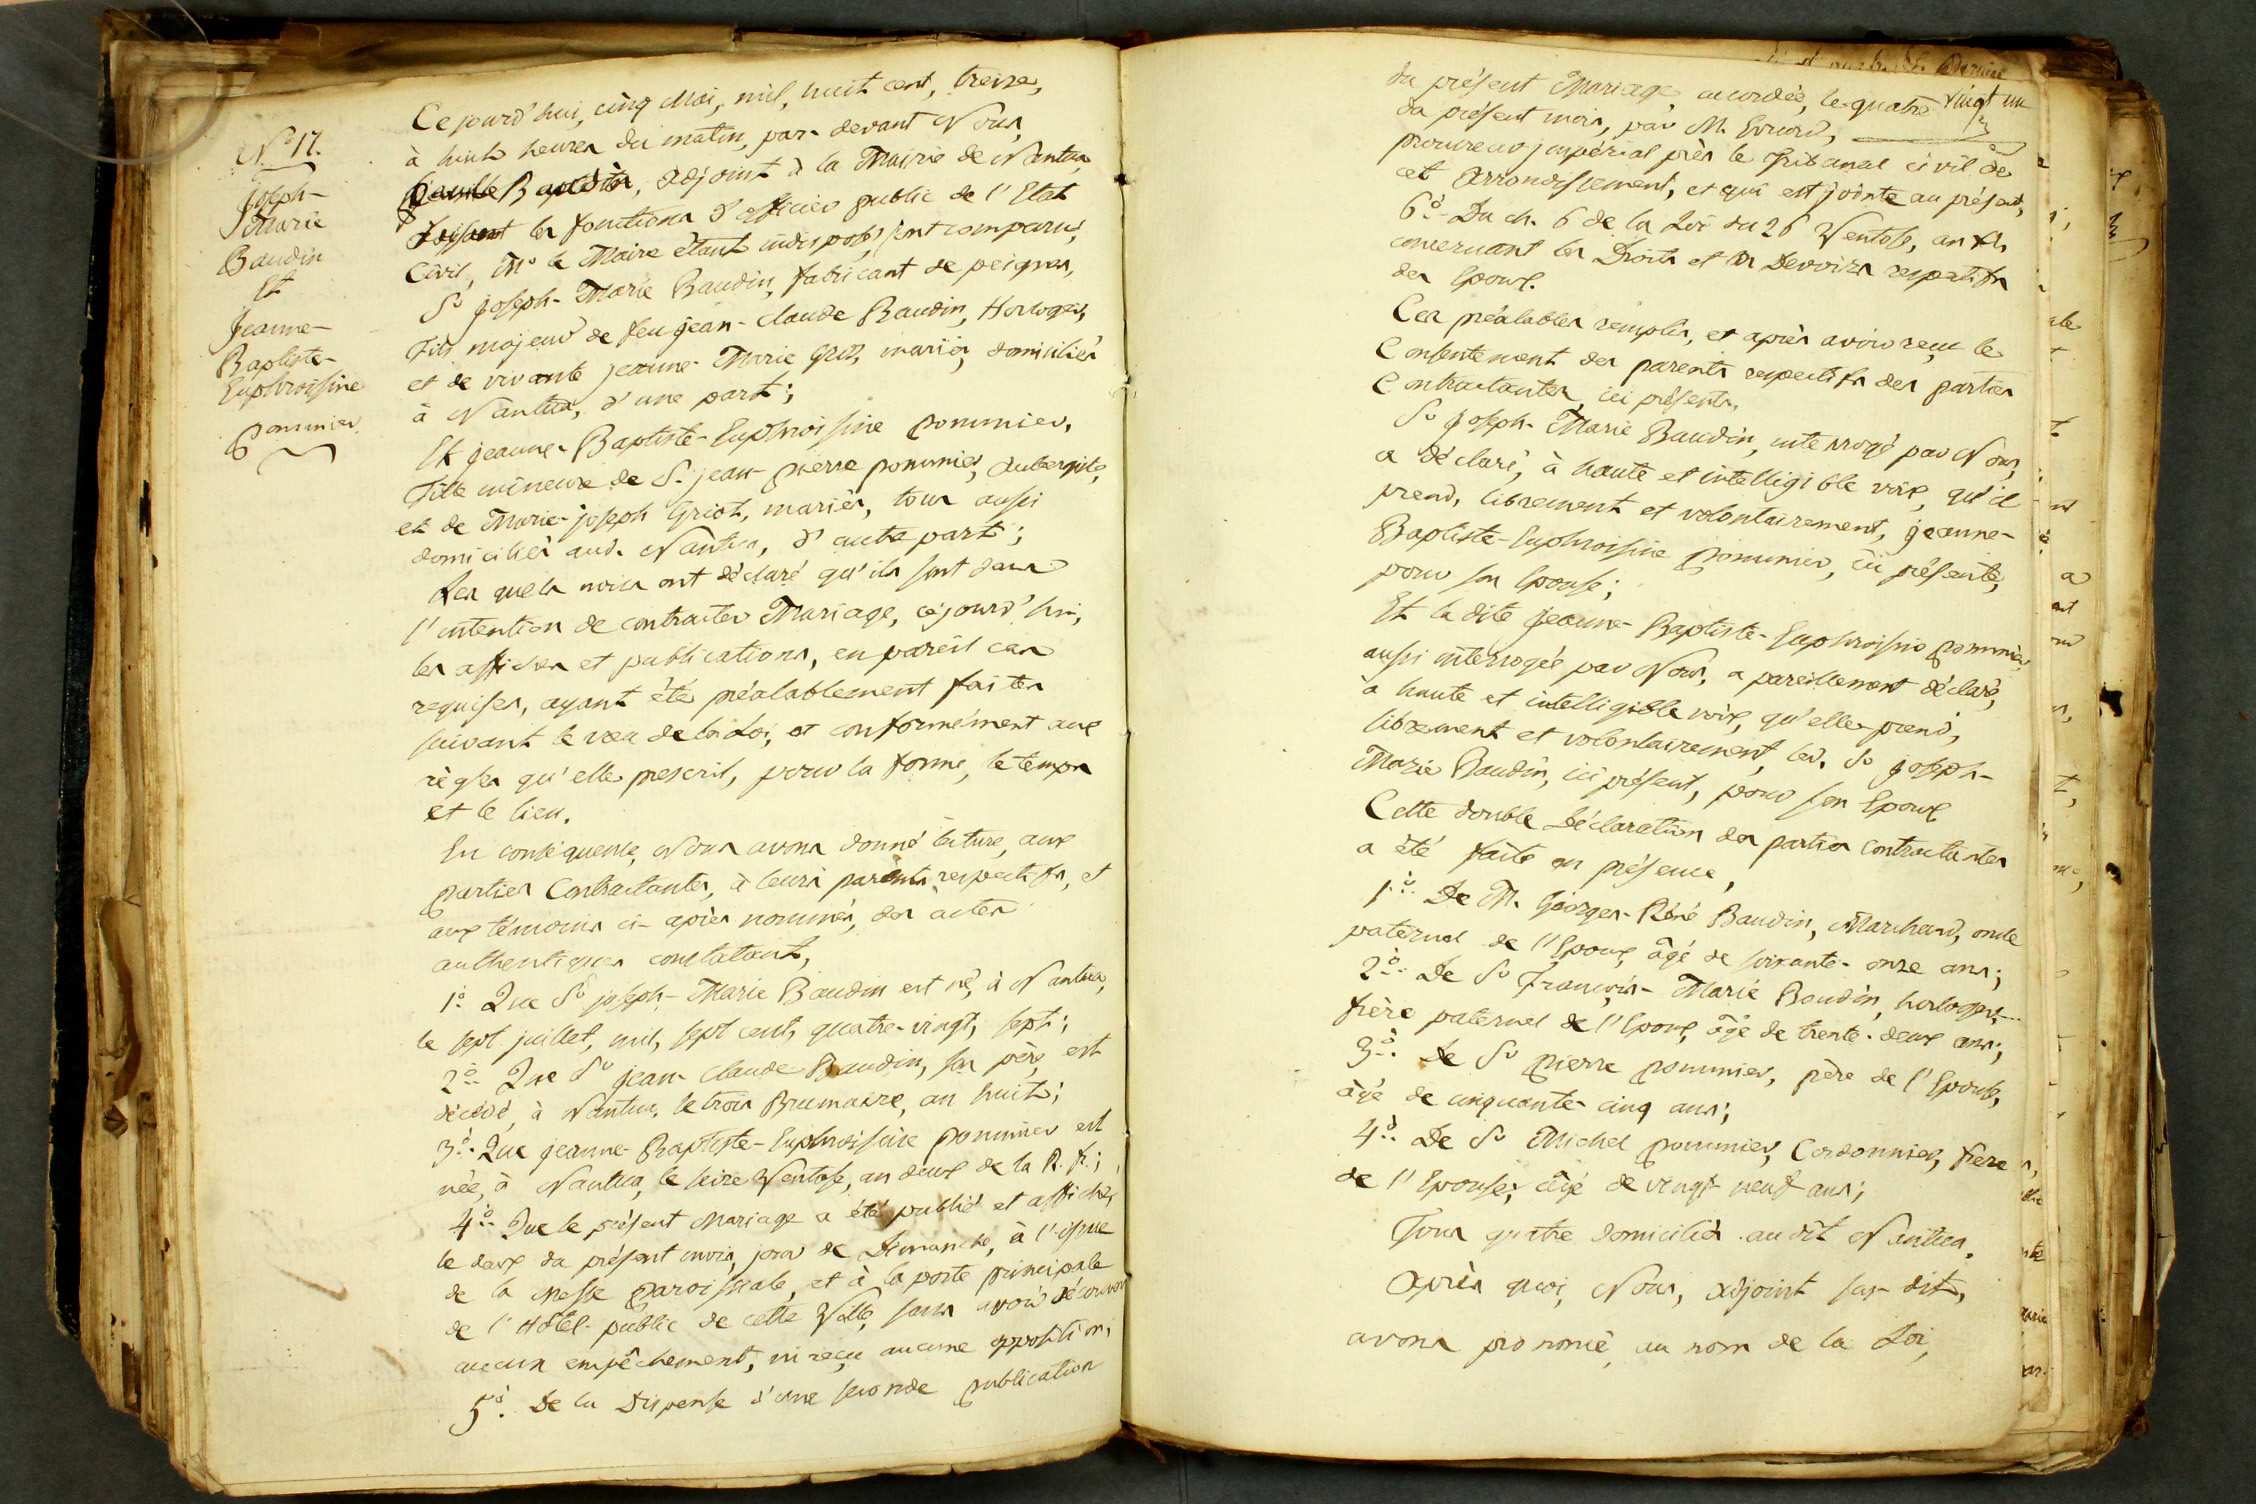 N.° 17.
Joseph-
Marie
Baudin
Et
Jeanne-
Baptiste-
Euphroisine
Pommier
Ce jourd'hui, cinq Mai, mil, huit cent, treize,
à huit heures du matin, par-devant Nous,
Baptiste, adjoint à la Mairie de Nantua,
faisant les fonctions d'officier public de l'Etat
Civil, Mr le Maire étant indisposé, sont comparus,
Sr Joseph-Marie Baudin, fabricant de peignes,
fils majeur de feu jean-Claude Baudin, Horloger,
et de vivante jeanne-Marie Gros, mariés, domiciliés
à Nantua, d'une part;
Et jeanne-Baptiste-Euphroisine Pommier,
fille mineure de S. jean-Pierre Pommier, Aubergiste,
et de Marie-joseph Griot, mariés, tous aussi
domiciliés aud. Nantua, d'autre part;
Les quels nous ont déclaré qu'ils sont dans
l'intention de contracter Mariage, cejourd'hui,
les affiches et publications, en pareil cas
requises, ayant été préalablement faites
suivant le vœu de la Loi, et conformément aux
règles qu'elle prescrit, pour la forme, le temps
et le lieu.
En conséquence, Nous avons donné lecture, aux
parties Contractantes, à leurs parents respectifs, et
aux témoins ci-après nommés, des actes
authentiques constatant,
1° Que Sr joseph-Marie Baudin est né, à Nantua,
le sept juillet, mil, sept cent, quatre-vingt, sept;
2° Que Sr jean-Claude Baudin, son père, est
décédé, à Nantua, le trois Brumaire, an huit;
3° Que jeanne-Baptiste-Euphroisine Pommier est
née, à Nantua, le seize Ventose, an deux de la R. fr.;
4° Que le présent Mariage a été publié et affiché,
le deux du présent mois, jour de Dimanche, à l'issue
de la Messe Paroissiale, et à la porte principale
de l'Hôtel-public de cette Ville, sans avoir découvert
aucun empêchement, ni reçu aucune opposition;
5° De la Dispense d'une seconde publication
du présent Mariage, accordée, le quatre vingt un
du présent mois, par M.
procureur jmpérial près le Tribunal civil de
cet Arrondissement, et qui est jointe au présent,
6° Du ch. 6 de la Loi du 26 Ventose, an XI,
concernant les Droits et les Devoirs respectifs
des Epoux.
Ces préalables remplis, et après avoir reçu le
Consentement des parents respectifs des parties
Contractantes, ici présents,
Sr Joseph-Marie Baudin, interrogé par Nous,
a déclaré, à haute et intelligible voix, qu'il
prend, librement et volontairement, jeanne-
Baptiste-Euphroisine Pommier, ici présente,
pour son Epouse;
Et la dite Jeanne-Baptiste-Euphroisine Pommier,
aussi interrogée par Nous, a pareillement déclaré,
à haute et intelligible voix, qu'elle prend,
librement et volontairement, led. Sr Joseph-
Marie Baudin, ici présent, pour son Epoux
Cette double Déclaration des parties Contractantes
a été faite en présence,
1° De M. Georges-Réné Baudin, Marchand, oncle
paternel de l'Epoux, âgé de soixante-onze ans;
2° De Sr François-Marie Baudin, horloger,
frère paternel de l'Epoux, âgé de trente-deux ans;
3° De Sr Pierre Pommier, père de l'Epouse,
âgé de cinquante-cinq ans;
4° De Sr Michel Pommier, Cordonnier, frère
de l'Epouse; âgé de vingt neuf ans;
Tous quatre domiciliés audit Nantua.
Après quoi, Nous, adjoint sus-dit,
avons prononcé, au nom de la Loi,